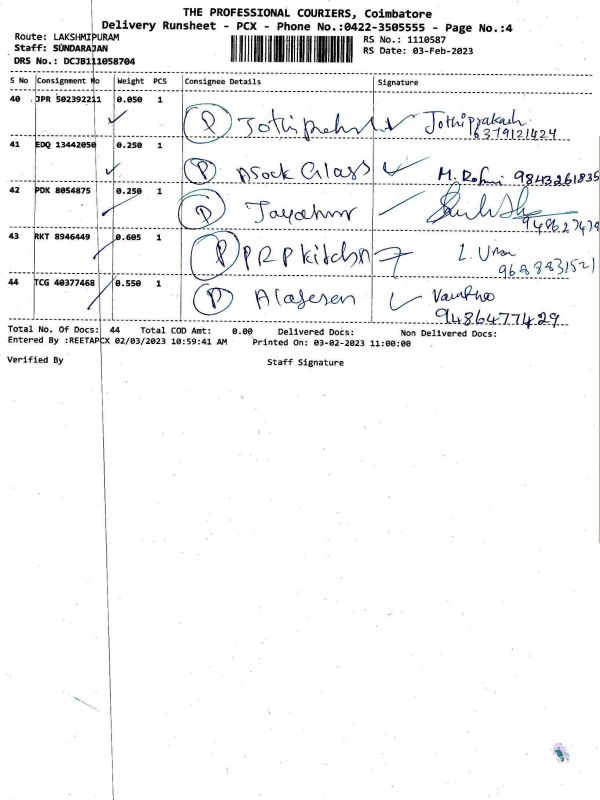 THE PROFESSIONAL COURIERS, Coimbatore
Delivery Runsheet - PCX - Phone No.:0422-3505555 - Page No.:4
Route: LAKSHMIPURAM RS No.: 1110587
Staff: SUNDARAJAN RS Date: 03-Feb-2023
DRS No.: DCJB111058704
S No Consignment No Weight PCS Consignee Details Signature
40 JPR 502392211 0.050 1 P Jothiprakash Jothipprakash
6379121424
41 EDQ 13442050 0.250 1 P Asock Glass M. 9843261835
42 PDK 8054875 0.250 1 P
43 RKT 8946449 0.605 1 P PRP Kitchen
9688831521
44 TCG 40377468 0.550 1 P
9486477429
Total No. Of Docs: 44 Total COD Amt: 0.00 Delivered Docs: Non Delivered Docs:
Entered By :REETAPCX 02/03/2023 10:59:41 AM Printed On: 03-02-2023 11:00:00
Verified By Staff Signature